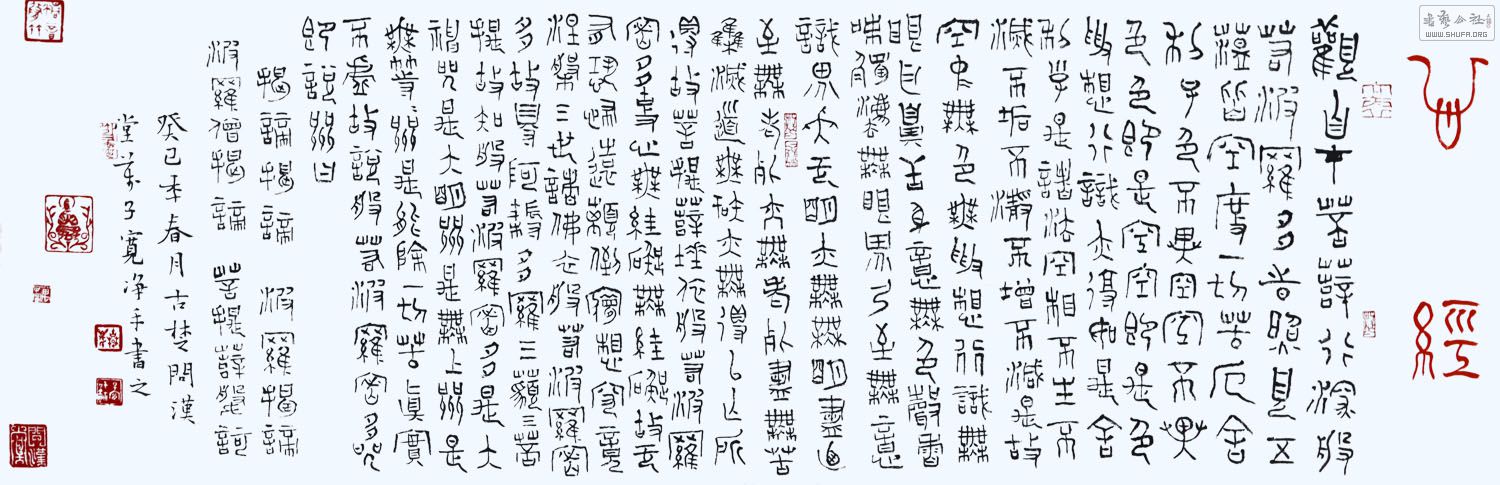 心經
觀自在菩薩行深般
若波羅多時照見五
蘊皆空度一切苦厄舍
利子色不異空空不異
色色即是空空即是色
受想行識亦復如是舍
利子是諸法空相不生不
滅不垢不淨不增不減是故
空中無色無受想行識無
眼耳鼻舌身意無色聲香
味觸法無眼界乃至無意
識界亦无明亦無無明盡迺
至無老死亦無老死盡無苦
集滅道無智亦無得以亡所
得故菩提薩埵依般若波羅
蜜多故心無罣礙無罣礙故无
有恐怖遠離顛倒夢想究竟
涅槃三世諸佛依般若波羅蜜
多故得阿耨多羅三藐三菩
提故知般若波羅蜜多是大
神咒是大明咒是無上咒是
無等等咒是能除一切苦真實
不虛故說般若波羅蜜多咒
即說咒曰
揭諦揭諦 波羅揭諦
波羅僧揭諦 菩提薩婆訶
癸巳年春月古楚問漢
堂萬子寬淨手書之
WWW.SHUFA.ORG